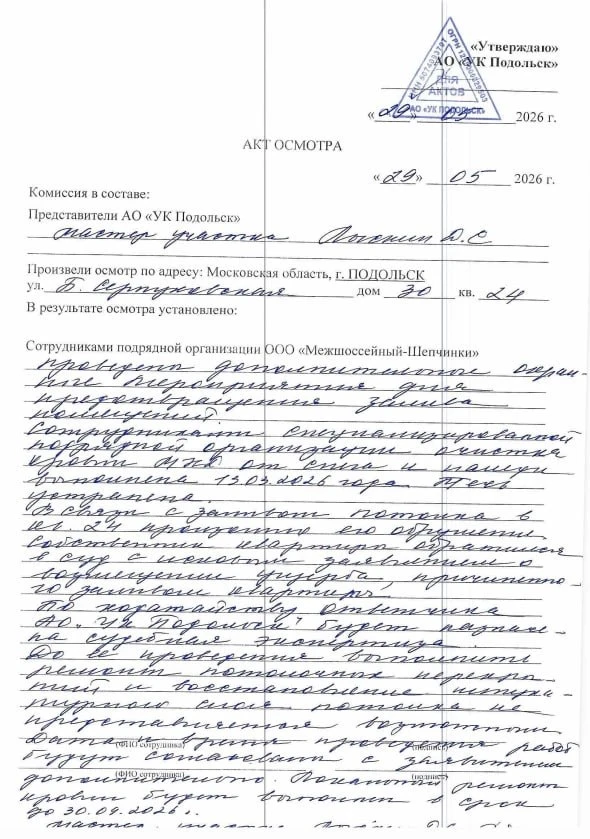 «Утверждаю»
АО «УК Подольск»
ОГРН
ДЛЯ
АКТОВ
АО «УК ПОДОЛЬСК»
«29» 05 2026 г.
АКТ ОСМОТРА
«29» 05 2026 г.
Комиссия в составе:
Представители АО «УК Подольск»
мастер участка Д.С
Произвели осмотр по адресу: Московская область, г. ПОДОЛЬСК
ул. Б. Серпуховская дом 30 кв. 24
В результате осмотра установлено:
Сотрудниками подрядной организации ООО «Межшоссейный-Шепчинки»
проведены дополнительные охран-
ные мероприятия для
предотвращения залива
помещений.
Сотрудниками специализированной
подрядной организации очистка
кровли МКД от снега и наледи
выполнена 13.03.2026 года. Течь
устранена.
В связи с заливом потолка в
кв. 24 произошло его обрушение.
Собственник квартиры обратился
в суд с исковым заявлением о
возмещении ущерба, причиненно-
го заливом квартиры.
По ходатайству ответчика
АО "УК Подольск" будет назначе-
на судебная экспертиза.
До ее проведения выполнить
ремонт потолочных перекры-
тий и восстановление штука-
турного слоя потолка не
представляется возможным.
Дата и время проведения работ
(ФИО сотрудника) (подпись)
будут согласованы с заявителем
(ФИО сотрудника) (подпись)
дополнительно. Локальный ремонт
кровли будет выполнен в срок
до 30.09.2026 г.
мастер участка